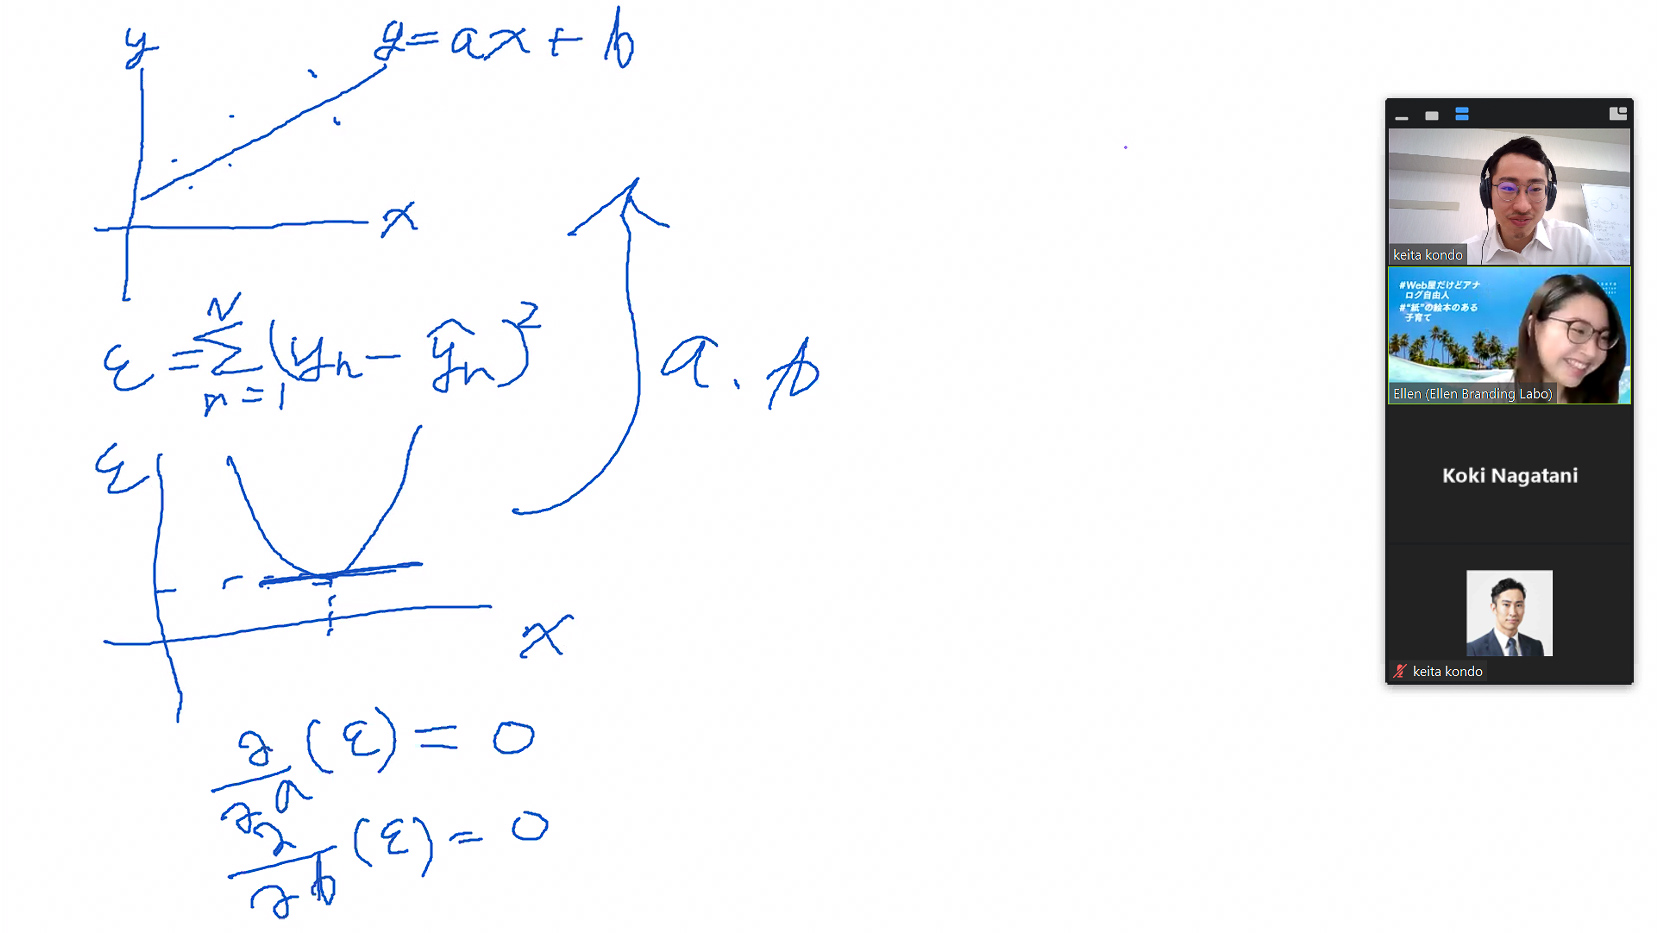 y
y = ax + b
x
ε = Σ_{n=1}^{N} (y_n − ŷ_n)²
a. b
ε
x
∂/∂a (ε) = 0
∂/∂b (ε) = 0
keita kondo
#Web屋だけどアナ
ログ自由人
#“紙”の絵本のある
子育て
Ellen (Ellen Branding Labo)
Koki Nagatani
keita kondo